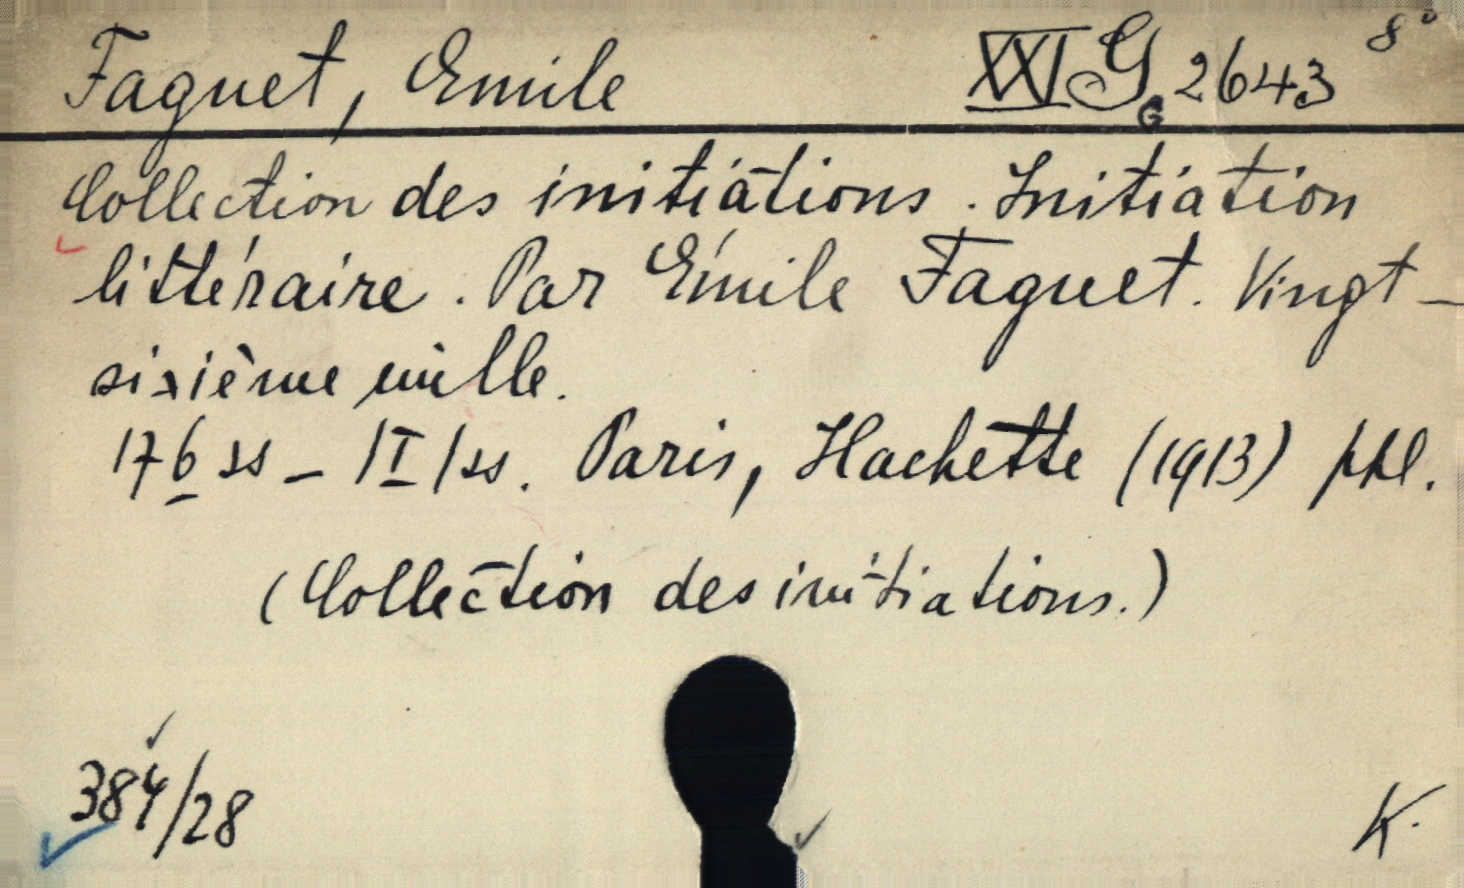 Faguet, Emile XXI G G 2643 8°
Collection des initiátions. Initiation
littéraire. Par Émile Faguet. Vingt-
sixième mille.
176 ss - |I| ss. Paris, Hachette (1913) ppl.
(Collection des initiations.)
384/28
K.